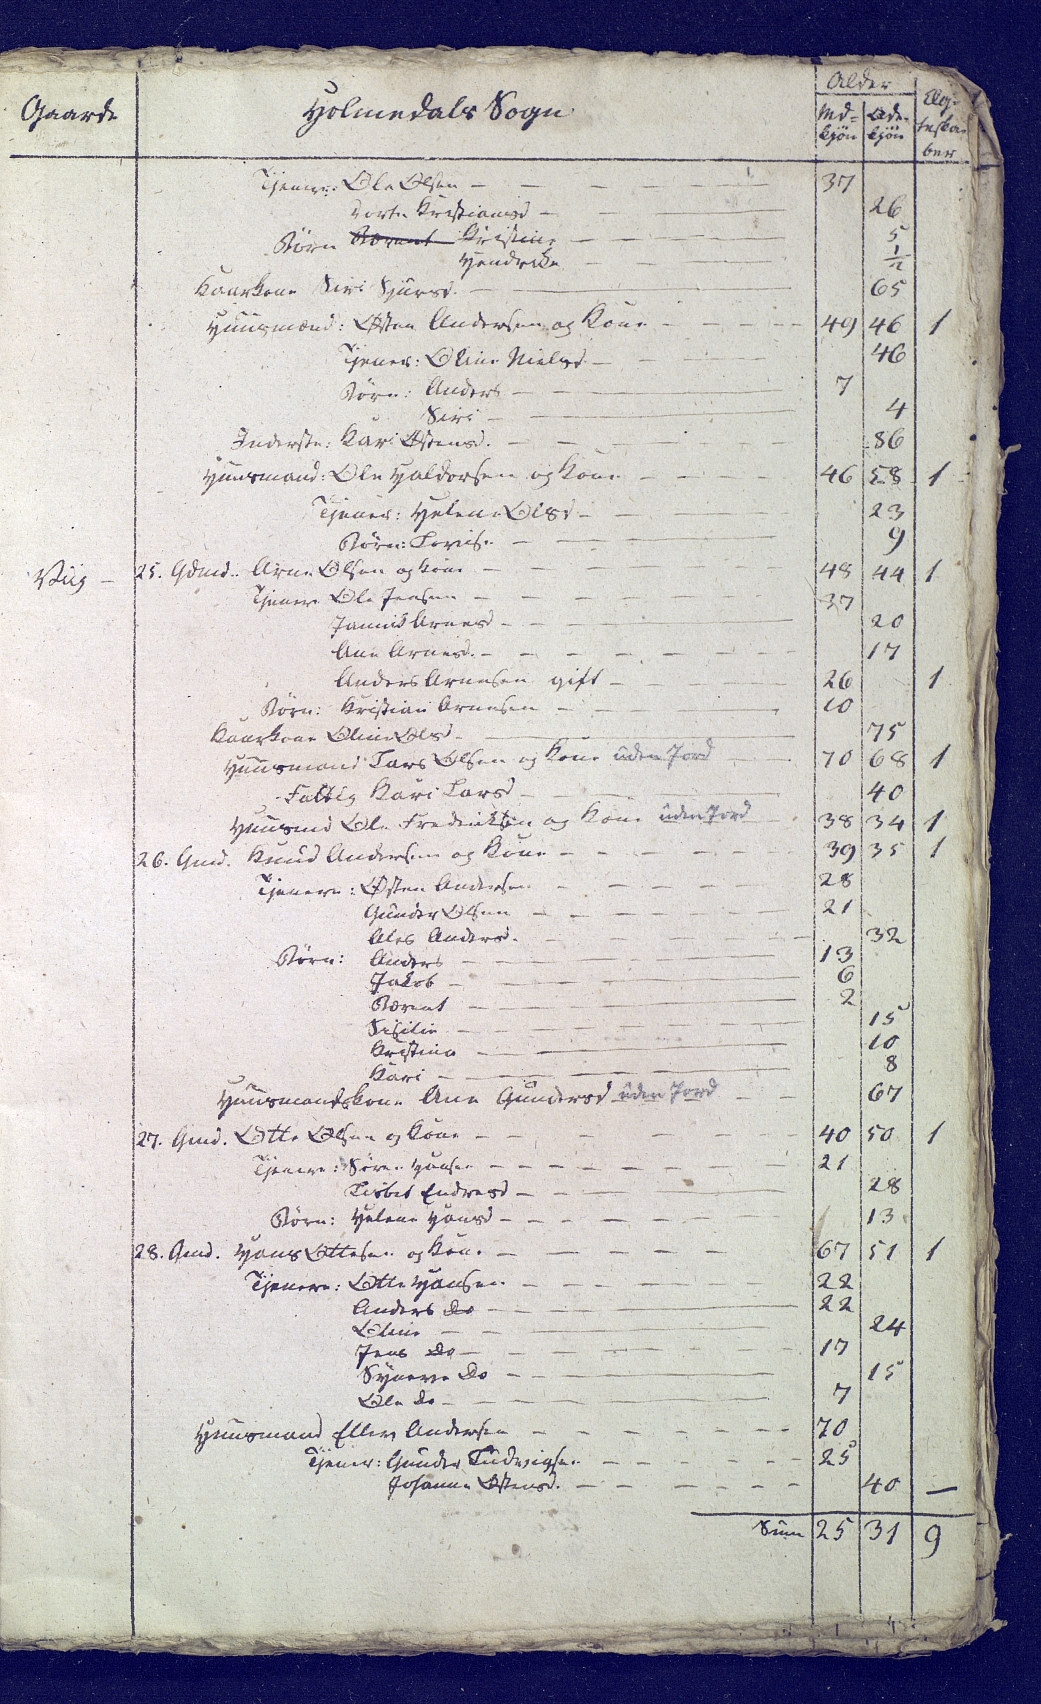 Gaarde Holmedals Sogn Alder Mdkjøn Qdekjøn Egteskaber
Tjenere: Ole Olsen — 37
Dorte Kristiansd — 26
Børn Bærent Kristine — 5
Hendrike — 1/2
Kaarkone Siri Sjursd. — 65
Huusmand: Østen Andersen og Kone — 49 46 1
Tjener: Oline Nielsd — 46
Børn: Anders — 7
Siri — 4
Inderste: Kari Østensd. — 86
Huusmand: Ole Haldorsen og Kone — 46 58 1
Tjener: Helene Olsd — 23
Børn: Lovise — 9
Viig — 25. Gdmd. Arne Olsen og Kone — 48 44 1
Tjenere Ole Jensen — 37
Jannik Arnesd — 20
Ane Arnesd. — 17
Anders Arnesen gift — 26 1
Børn: Kristian Arnesen — 10
Kaarkone Oline Olsd — 75
Huusmand Lars Olsen og Kone uden Jord — 70 68 1
Fattig Kari Larsd — 40
Huusmd Ole Fredriksen og Kone uden Jord — 38 34 1
26. Gmd. Knud Andersen og Kone — 39 35 1
Tjenere: Østen Andersen — 28
Gunder Olsen — 21
Ales Andersd. — 32
Børn: Anders — 13
Jakob — 6
Bærent — 2
Sisilie — 15
Kristine — 10
Kari — 8
Huusmandskone Ane Gundersd uden Jord — 67
27. Gmd. Otte Olsen og Kone — 40 50 1
Tjenere: Søren Hansen — 21
Lisbet Endresd — 28
Børn: Helene Hansd — 13
28. Gmd. Hans Ottesen og Kone — 67 51 1
Tjenere: Otte Hansen — 22
Anders Do — 22
Oline — 24
Jens Do — 17
Synneve Do — 15
Ole Do — 7
Huusmand Ellev Andersen — 70
Tjener: Gunder Ludvigsen — 25
Johanne Østensd. — 40 —
Sum 25 31 9